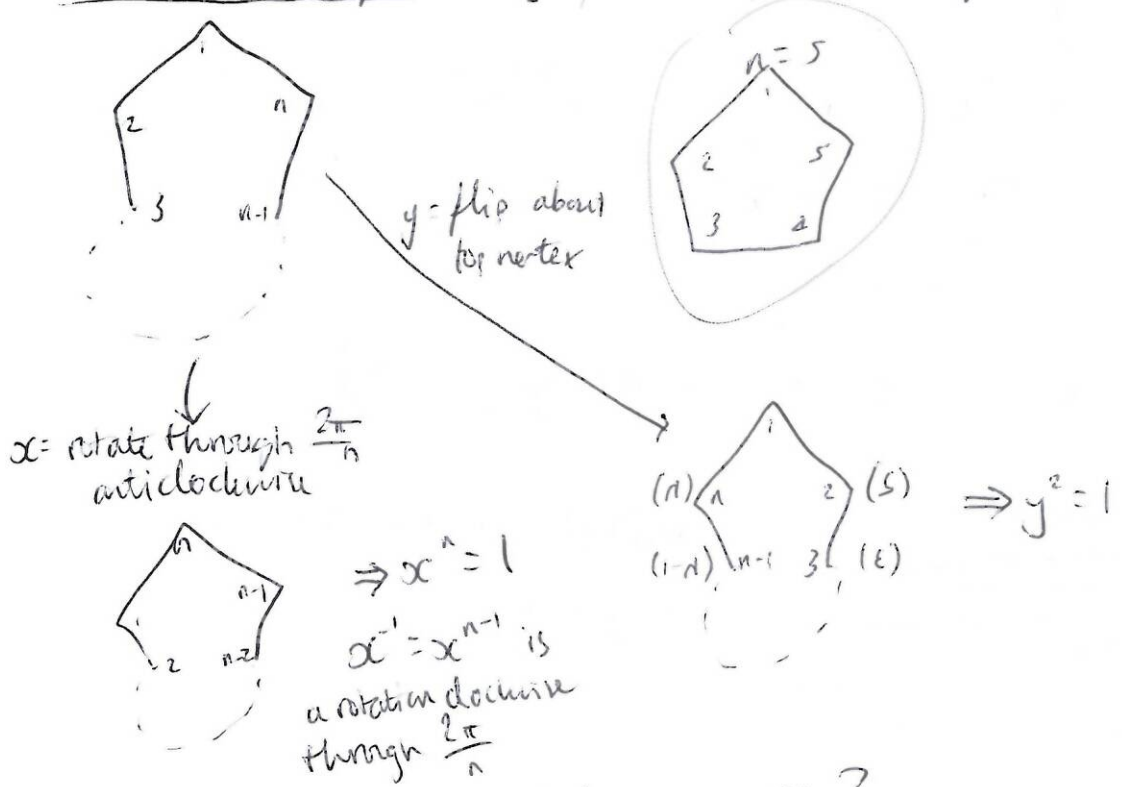 1
2
n
3
n-1
n = 5
1
2
5
3
4
y = flip about
top vertex
x = rotate through 2π/n
anticlockwise
n
n-1
1
2
n-2
⇒ xⁿ = 1
x⁻¹ = xⁿ⁻¹ is
a rotation clockwise
through 2π/n
1
(n) n
2
⇒ y² = 1
n-1
3